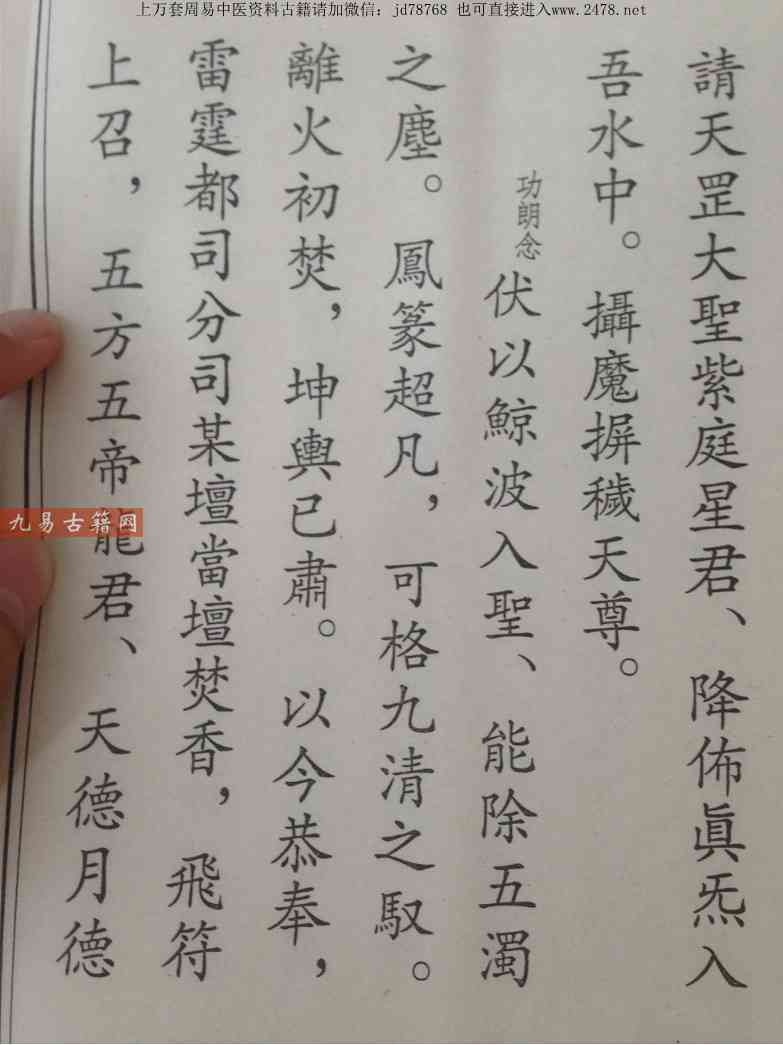 上万套周易中医资料古籍请加微信：jd78768 也可直接进入www.2478.net
請天罡大聖紫庭星君、降佈眞炁入
吾水中。攝魔摒穢天尊。
功朗念伏以鯨波入聖、能除五濁
之塵。鳳篆超凡，可格九清之馭。
離火初焚，坤輿已肅。以今恭奉，
雷霆都司分司某壇當壇焚香，飛符
上召，五方五帝龍君、天德月德
九易古籍网